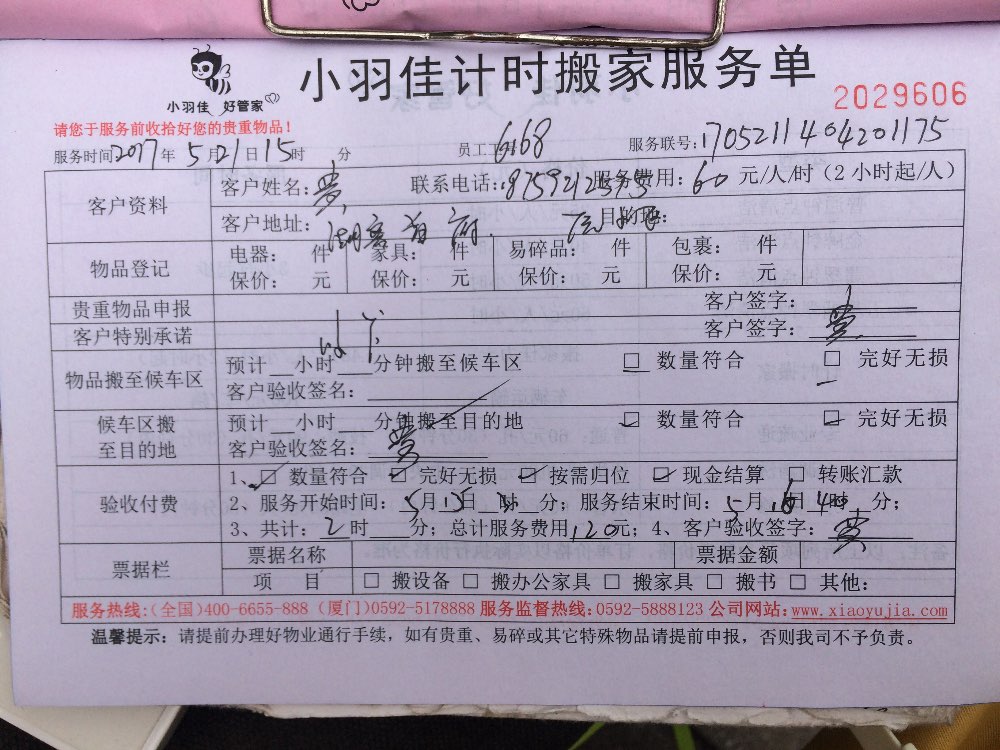 小羽佳 好管家
小羽佳计时搬家服务单
2029606
请您于服务前收拾好您的贵重物品！
服务时间2017年5月21日15时 分 员工工 6168 服务联号：1705211404201175
客户资料
客户姓名： 联系电话： 服务费用：60元/人/时（2小时起/人）
客户地址： 目的地：
物品登记
电器： 件 家具： 件 易碎品： 件 包裹： 件
保价： 元 保价： 元 保价： 元 保价： 元
贵重物品申报 客户签字：
客户特别承诺 客户签字：
物品搬至候车区
预计__小时___分钟搬至候车区 □ 数量符合 □ 完好无损
客户验收签名：
候车区搬
至目的地
预计__小时___分钟搬至目的地 □ 数量符合 □ 完好无损
客户验收签名：
验收付费
1、□ 数量符合 □ 完好无损 □ 按需归位 □ 现金结算 □ 转账汇款
2、服务开始时间：5月 日 时 分；服务结束时间： 月 日 时 分；
3、共计：2时 分；总计服务费用120元；4、客户验收签字：
票据栏
票据名称 票据金额
项 目 □ 搬设备 □ 搬办公家具 □ 搬家具 □ 搬书 □ 其他：
服务热线：（全国）400-6655-888（厦门）0592-5178888 服务监督热线：0592-5888123 公司网站：www.xiaoyujia.com
温馨提示：请提前办理好物业通行手续，如有贵重、易碎或其它特殊物品请提前申报，否则我司不予负责。